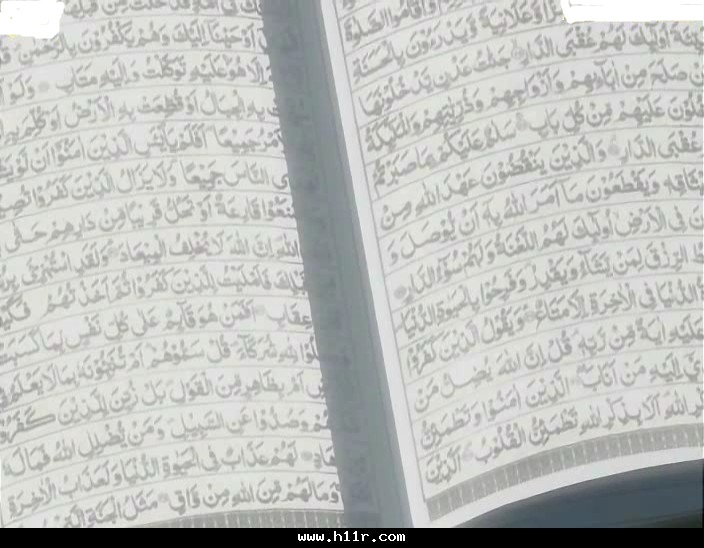 وَاَقَامُوا الصَّلٰوةَ
وَّعَلَانِيَةً وَّيَدْرَءُوْنَ بِالْحَسَنَةِ
اُولٰٓئِكَ لَهُمْ عُقْبَى الدَّارِ جَنّٰتُ عَدْنٍ يَّدْخُلُوْنَهَا
صَلَحَ مِنْ اٰبَآئِهِمْ وَاَزْوَاجِهِمْ وَذُرِّيّٰتِهِمْ وَالْمَلٰٓئِكَةُ
عَلَيْهِمْ مِّنْ كُلِّ بَابٍ سَلٰمٌ عَلَيْكُمْ بِمَا صَبَرْتُمْ
عُقْبَى الدَّارِ وَالَّذِيْنَ يَنْقُضُوْنَ عَهْدَ اللّٰهِ مِنْ
وَيَقْطَعُوْنَ مَآ اَمَرَ اللّٰهُ بِهٖٓ اَنْ يُّوْصَلَ وَ
فِى الْاَرْضِ اُولٰٓئِكَ لَهُمُ اللَّعْنَةُ وَلَهُمْ سُوْٓءُ الدَّارِ
الرِّزْقَ لِمَنْ يَّشَآءُ وَيَقْدِرُ وَفَرِحُوْا بِالْحَيٰوةِ الدُّنْيَا
الدُّنْيَا فِى الْاٰخِرَةِ اِلَّا مَتَاعٌ وَيَقُوْلُ الَّذِيْنَ كَفَرُوْا
عَلَيْهِ اٰيَةٌ مِّنْ رَّبِّهٖ قُلْ اِنَّ اللّٰهَ يُضِلُّ مَنْ
اِلَيْهِ مَنْ اَنَابَ اَلَّذِيْنَ اٰمَنُوْا وَتَطْمَئِنُّ
اللّٰهِ اَلَا بِذِكْرِ اللّٰهِ تَطْمَئِنُّ الْقُلُوْبُ اَلَّذِيْنَ
اَوْحَيْنَآ اِلَيْكَ وَهُمْ يَكْفُرُوْنَ بِالرَّحْمٰنِ
اِلَّا هُوَ عَلَيْهِ تَوَكَّلْتُ وَاِلَيْهِ مَتَابِ وَلَوْ
بِهِ الْجِبَالُ اَوْ قُطِّعَتْ بِهِ الْاَرْضُ اَوْ
جَمِيْعًا اَفَلَمْ يَايْـَٔسِ الَّذِيْنَ اٰمَنُوْٓا اَنْ لَّوْ
النَّاسَ جَمِيْعًا وَلَا يَزَالُ الَّذِيْنَ كَفَرُوْا
صَنَعُوْا قَارِعَةٌ اَوْ تَحُلُّ قَرِيْبًا مِّنْ دَارِهِمْ حَتّٰى
اللّٰهِ اِنَّ اللّٰهَ لَا يُخْلِفُ الْمِيْعَادَ وَلَقَدِ اسْتُهْزِئَ
قَبْلِكَ فَاَمْلَيْتُ لِلَّذِيْنَ كَفَرُوْا ثُمَّ اَخَذْتُهُمْ فَكَيْفَ
عِقَابِ اَفَمَنْ هُوَ قَآئِمٌ عَلٰى كُلِّ نَفْسٍ بِمَا كَسَبَتْ
لِلّٰهِ شُرَكَآءَ قُلْ سَمُّوْهُمْ اَمْ تُنَبِّـُٔوْنَهٗ بِمَا لَا يَعْلَمُ
اَمْ بِظَاهِرٍ مِّنَ الْقَوْلِ بَلْ زُيِّنَ لِلَّذِيْنَ كَفَرُوْا
وَصُدُّوْا عَنِ السَّبِيْلِ وَمَنْ يُّضْلِلِ اللّٰهُ فَمَا لَهٗ
هَادٍ لَهُمْ عَذَابٌ فِى الْحَيٰوةِ الدُّنْيَا وَلَعَذَابُ الْاٰخِرَةِ
وَمَا لَهُمْ مِّنَ اللّٰهِ مِنْ وَّاقٍ مَثَلُ الْجَنَّةِ الَّتِيْ
www.h11r.com